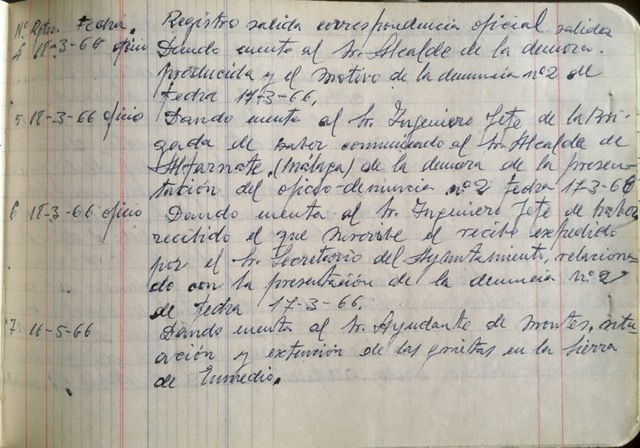 Nº Rstro. Fecha. Registro salida correspondencia oficial salida
4 18-3-66 oficio Dando cuenta al Sr. Alcalde de la demora.
producida y el motivo de la denuncia nº2 de
fecha 17-3-66.
5 18-3-66 oficio Dando cuenta al Sr. Ingeniero Jefe de la Bri
gada de haber comunicado al Sr. Alcalde de
Alfarnate, (Málaga) de la demora de la presen-
tación del oficio-denuncia nº2 fecha 17-3-66
6 18-3-66 oficio Dando cuenta al Sr. Ingeniero Jefe de haber
recibido el que suscribe el recibo expedido
por el Sr. Secretario del Ayuntamiento, relaciona-
do con la presentación de la denuncia nº2
de fecha 17-3-66,
7. 16-5-66 Dando cuenta al Sr. Ayudante de Montes, situ-
ación y extención de las grietas en la Sierra
de Enmedio.